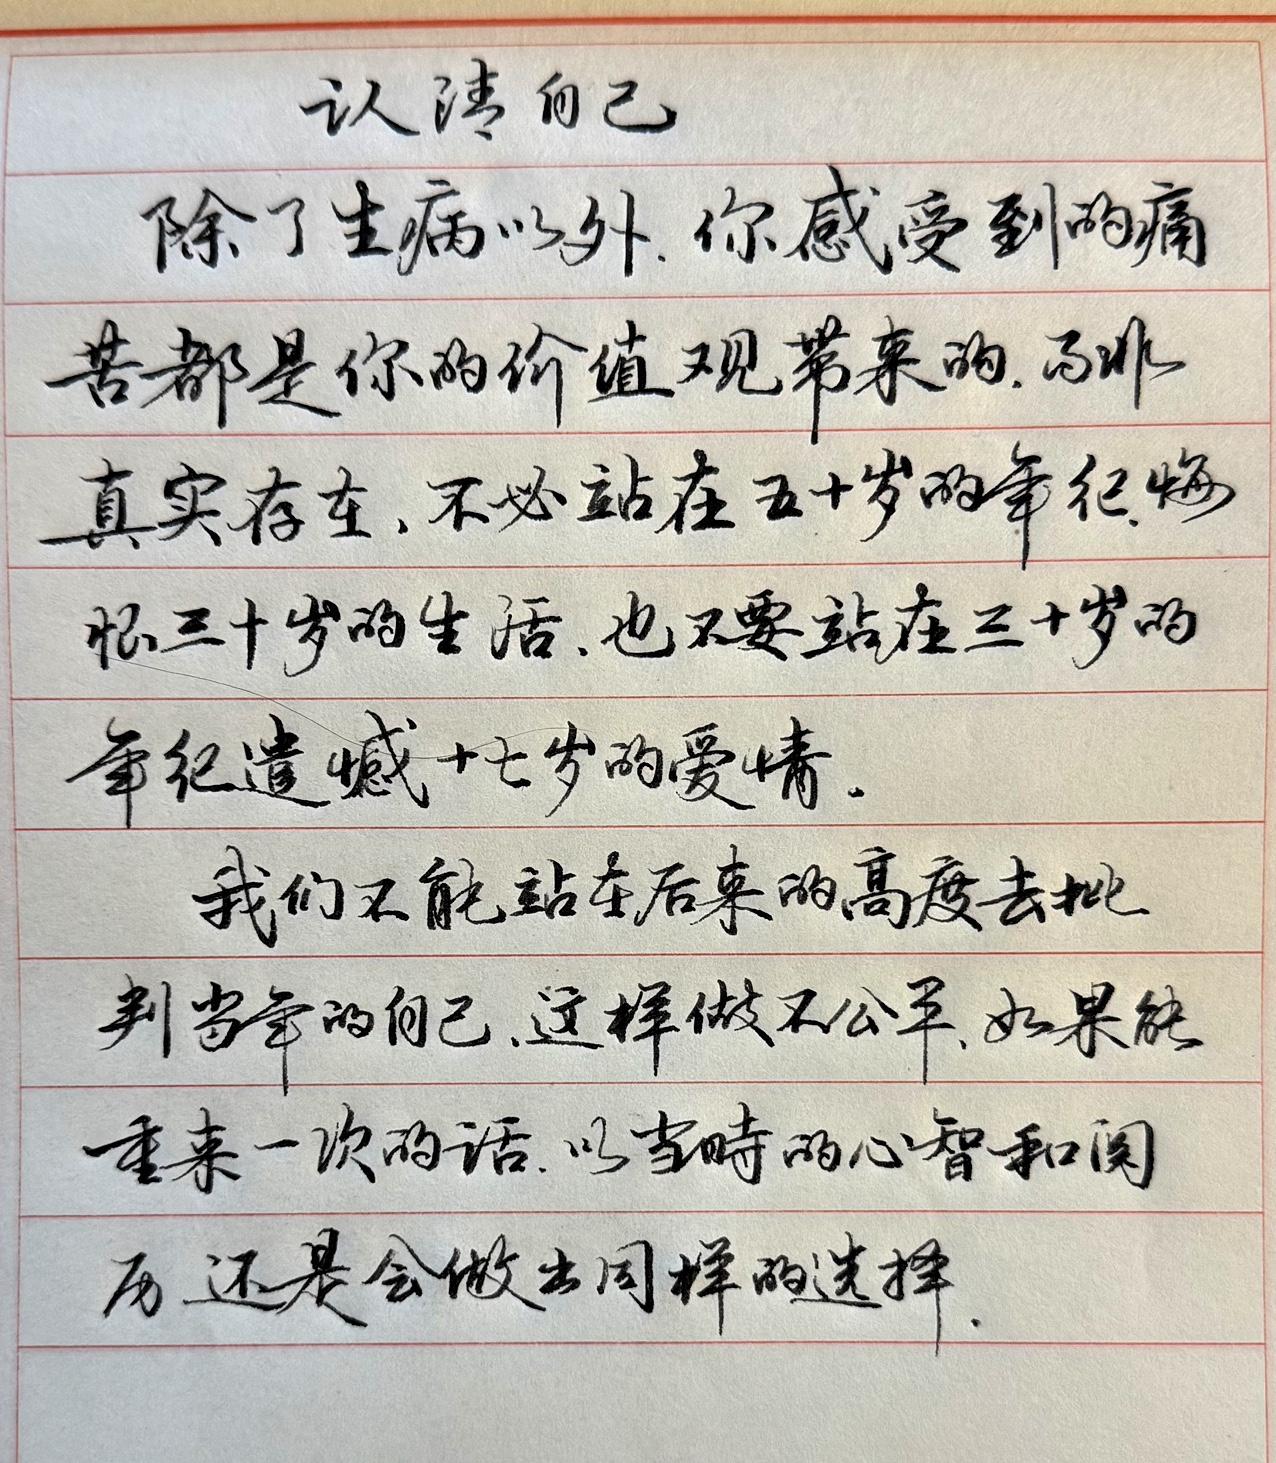 认清自己
除了生病以外.你感受到的痛
苦都是你的价值观带来的.而非
真实存在、不必站在五十岁的年纪、悔
恨三十岁的生活、也不要站在三十岁的
年纪遗憾十七岁的爱情.
我们不能站在后来的高度去批
判当年的自己、这样做不公平、如果能
重来一次的话.以当時的心智和阅
历还是会做出同样的选择.